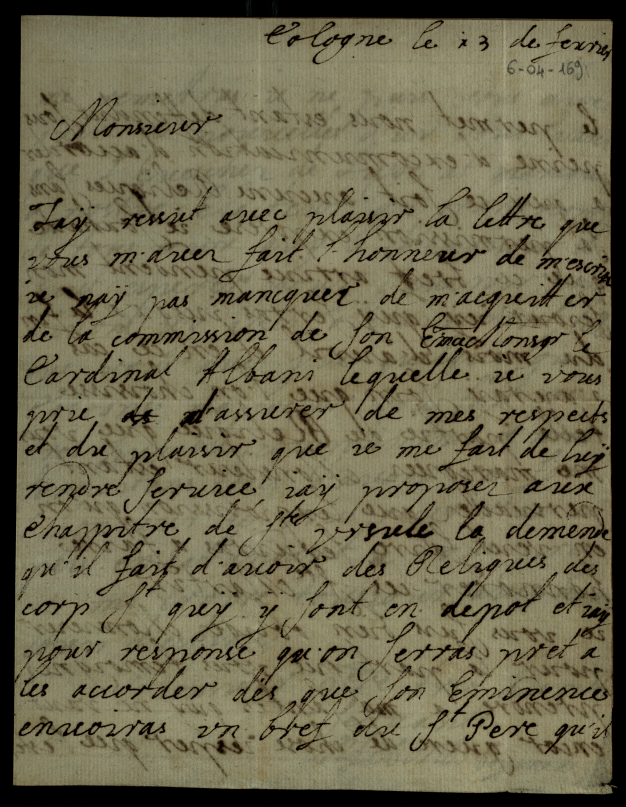 Cologne le 13 de fevrier
6-04-169
Monsieur
Jaÿ ressut avec plaisir la lettre que
vous m'avez fait l'honneur de m'escrire
ie naÿ pas mancquez de m'acquitter
de la commission de son Emac Monsgr le
Cardinal Albani lequelle ie vous
prie d'assurer de mes respects
et du plaisir que ie me fait de luÿ
rendre servicé, iaÿ proposer aux
Chappitre de Ste Vrsule la demende
qu'il fait d'avoir des Reliques des
corp St quÿ ÿ sont en depot et iaÿ
pour response qu'on serras pret a
les accorder dès que son Eminences
envoiras vn bref du St Pere qu'il